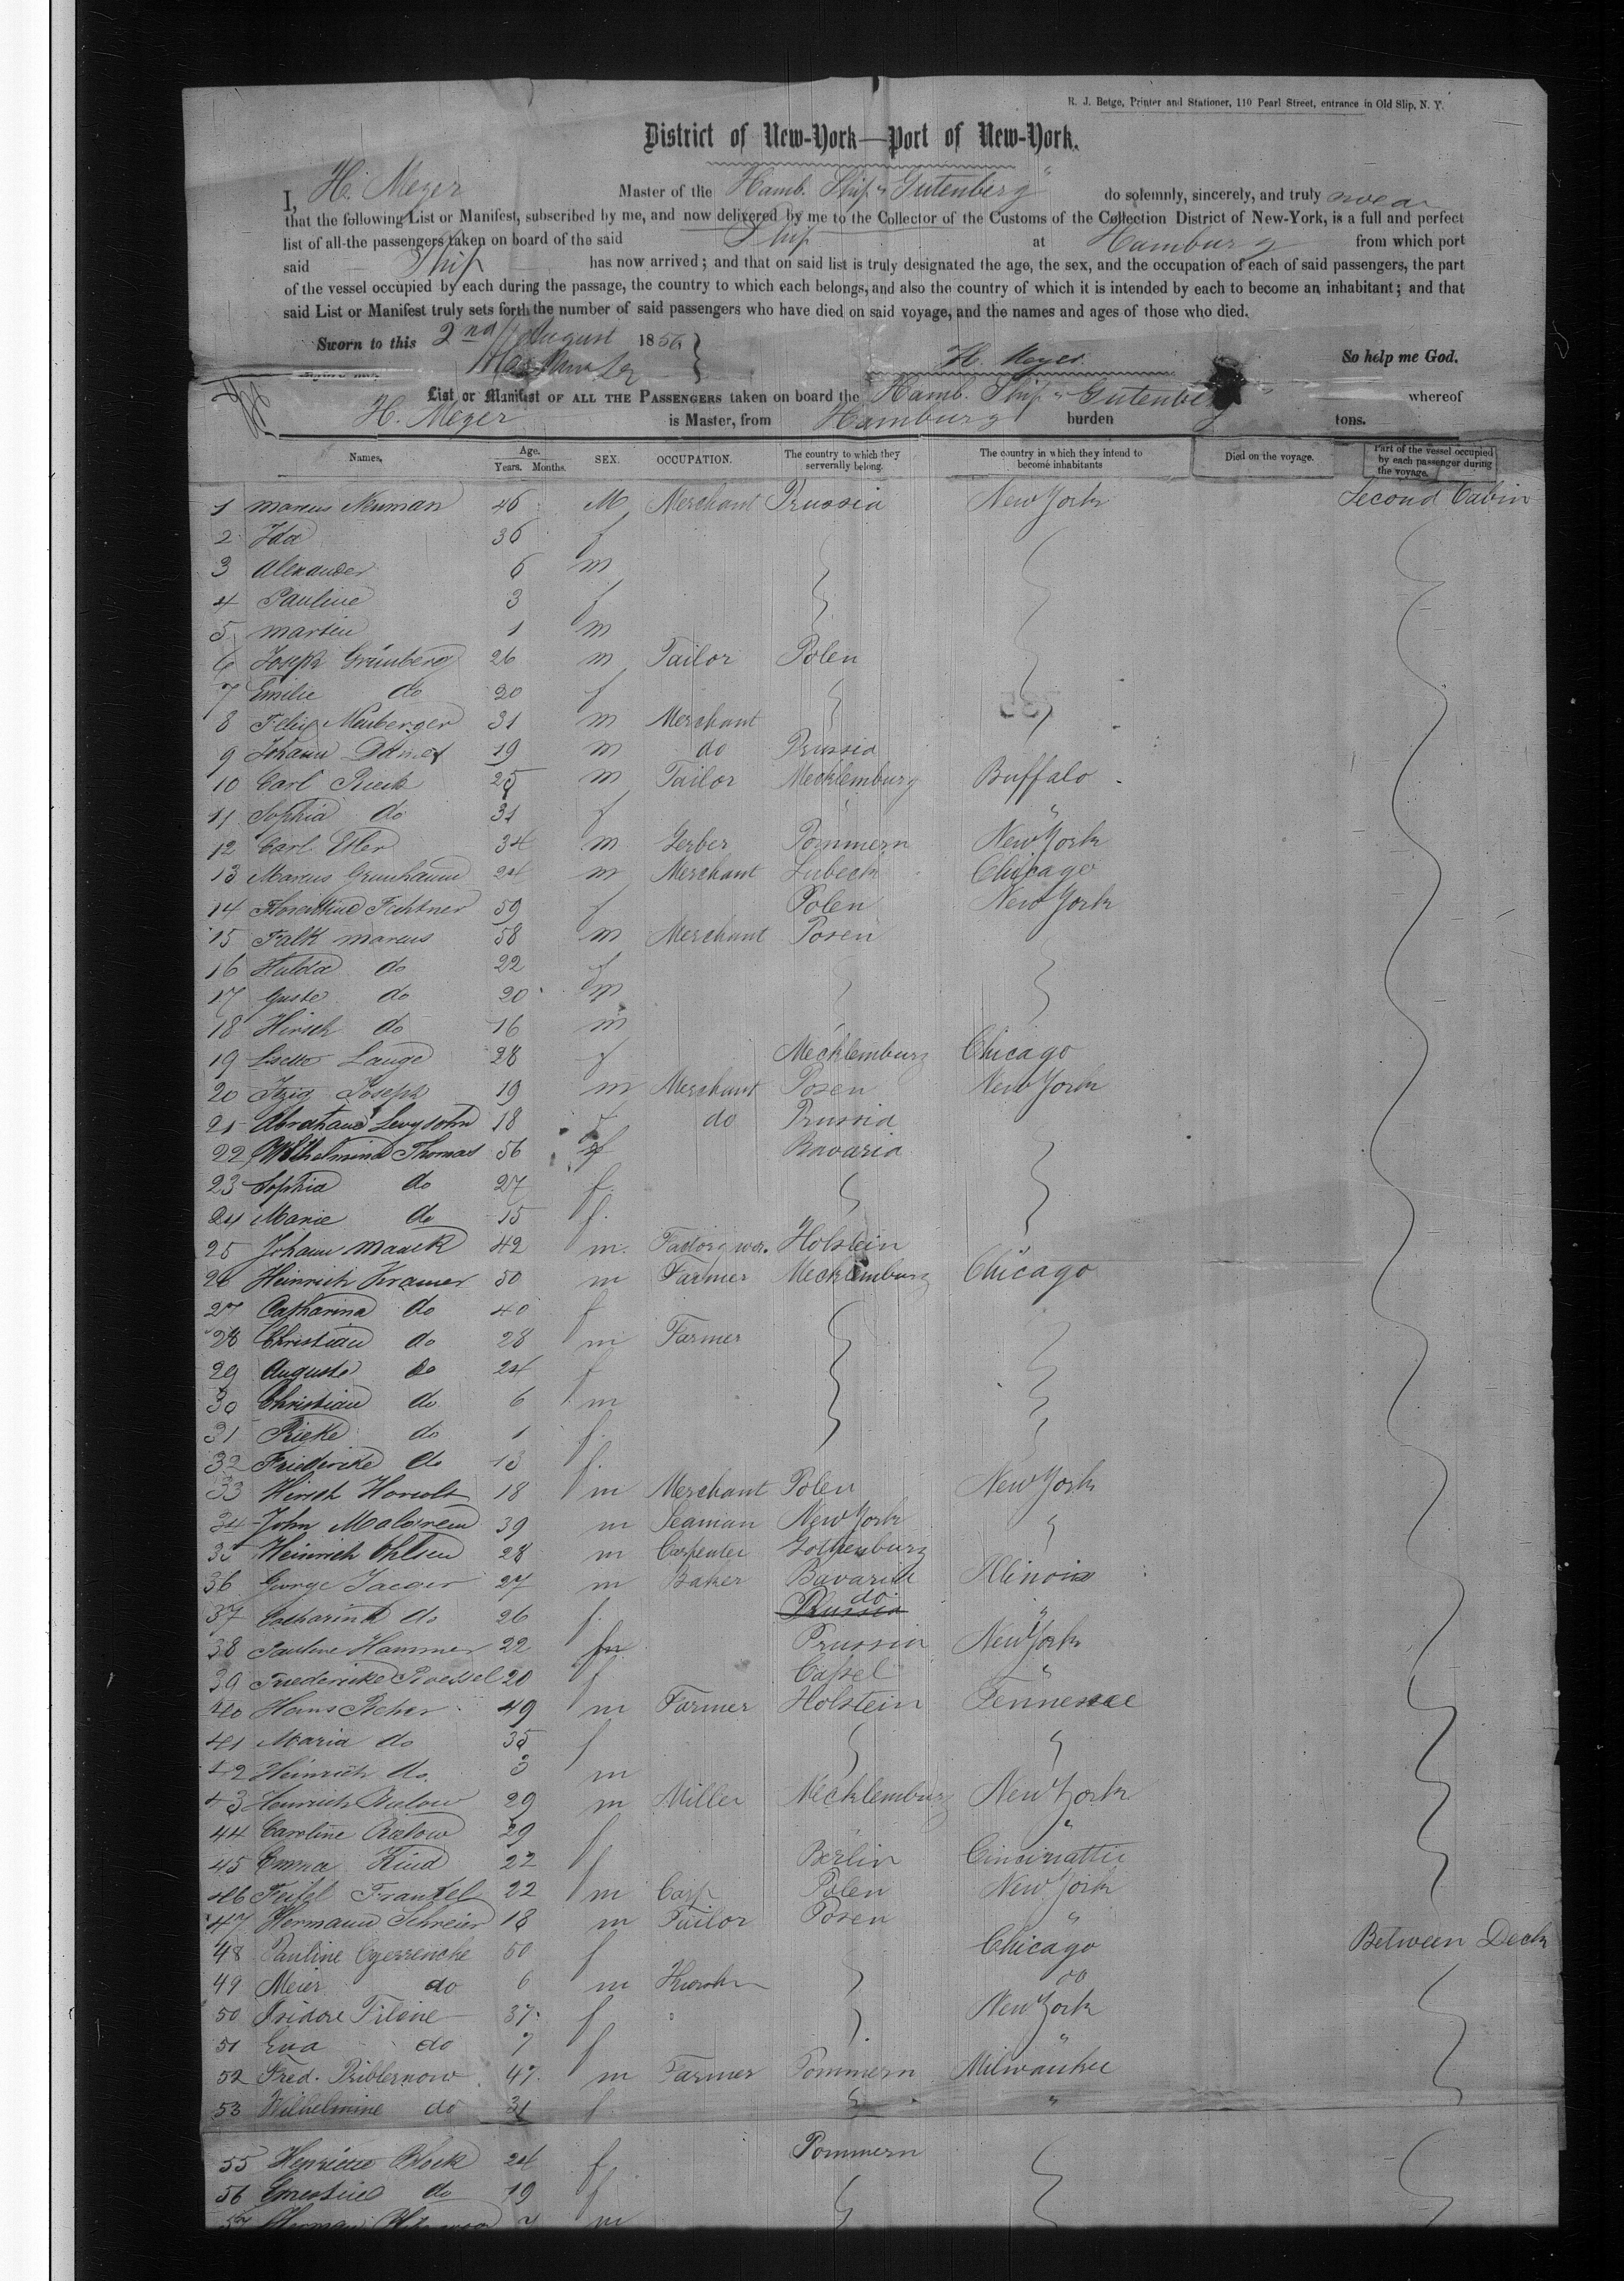 R. J. Betge, Printer and Stationer, 110 Pearl Street, entrance in Old Slip, N. Y.
District of New-York—Port of New-York.
I, H. Meyer Master of the Hamb. Ship "Gutenberg" do solemnly, sincerely, and truly swear
that the following List or Manifest, subscribed by me, and now delivered by me to the Collector of the Customs of the Collection District of New-York, is a full and perfect
list of all the passengers taken on board of the said Ship at Hamburg from which port
said Ship has now arrived; and that on said list is truly designated the age, the sex, and the occupation of each of said passengers, the part
of the vessel occupied by each during the passage, the country to which each belongs, and also the country of which it is intended by each to become an inhabitant; and that
said List or Manifest truly sets forth the number of said passengers who have died on said voyage, and the names and ages of those who died.
Sworn to this 2nd August 1856
H. Meyer. So help me God.
List or Manifest OF ALL THE PASSENGERS taken on board the Hamb. Ship "Gutenberg" whereof
H. Meyer is Master, from Hamburg burden tons.
Names. Age. Years. Months. SEX. OCCUPATION. The country to which they serverally belong. The country in which they intend to become inhabitants Died on the voyage. Part of the vessel occupied by each passenger during the voyage.
1 Marcus Neuman 46 M Merchant Prussia New York Second Cabin
2 Ida 36 f
3 Alexander 6 m
4 Pauline 3 f
5 Martin 1 m
6 Joseph Grünberg 26 m Tailor Polen
7 Emilie do 20 f
8 Felix Neuberger 31 m Merchant
9 Johann 19 m do Prussia
10 Carl Rieck 25 m Tailor Mecklemburg Buffalo
11 Sophia do 31 f "
12 Carl Etler 34 m Gerber Pommern New York
13 Marcus Grunhaum 24 m Merchant Lubeck Chicago
14 Florentine Fichtner 59 f Polen New York
15 Falk Marcus 58 m Merchant Posen
16 Hulda do 22 f
17 Guste do 20 m
18 Hirsch do 16 m
19 Lisette Lange 28 f Mecklemburg Chicago
20 Itzig Joseph 19 m Merchant Posen New York
21 Abraham Levysohn 18 f do Prussia
22 Wilhelmina Thomas 56 f Bavaria
23 Sophia do 27 f.
24 Marie do 15 f.
25 Johann Mauck 42 m. Factory wor. Holstein
26 Heinrich Kramer 50 m Farmer Mecklemburg Chicago
27 Catharina do 40 f
28 Christian do 28 m Farmer
29 Auguste do 24 f
30 Christian do 6 m
31 Rieke do 1 f.
32 Friederike do 13 f.
33 Hirsch 18 m Merchant Polen New York
34 John 39 m Seaman New York "
35 Heinrich Ohlsen 28 m Carpenter Gothenburg
36 George Jaeger 27 m Baker Bavaria Illinois
37 Catharina do 26 f. Prussia do "
38 Pauline Hammer 22 Prussia New York
39 Friederike Roessel 20 f Cassel "
40 Hans Reher 49 m Farmer Holstein Tennessee
41 Maria do 35 f
42 Heinrich do. 3 m
43 Heinrich Rielow 29 m Miller Mecklemburg New York
44 Caroline Rielow 29 f "
45 Emma Kind 22 f Berlin Cincinattie
46 Feifel Frankel 22 m Carp Polen New York
47 Hermann Schreier 18 m Tailor Posen "
48 Pauline 50 f Chicago Between Deck
49 Meier do 6 m do
50 Isidore Filone 37 f New York
51 Eva do 7 f "
52 Fred. Ribbernow 47 m Farmer Pommern Milwaukee
53 Wilhelmine do 31 f "
55 Henriette Block 24 f Pommern
56 Ernestine do 19 f
57 Herman m